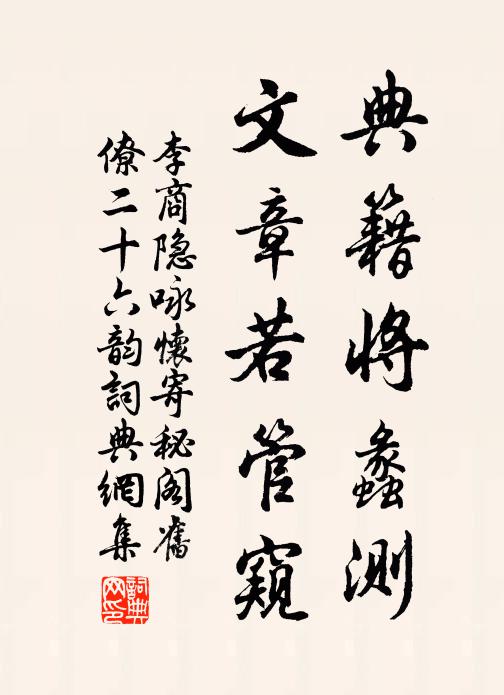 典籍將蠡測
文章若管窺
李商隐咏懷寄秘阁舊
僚二十六韵詞典網集
詞典
网印